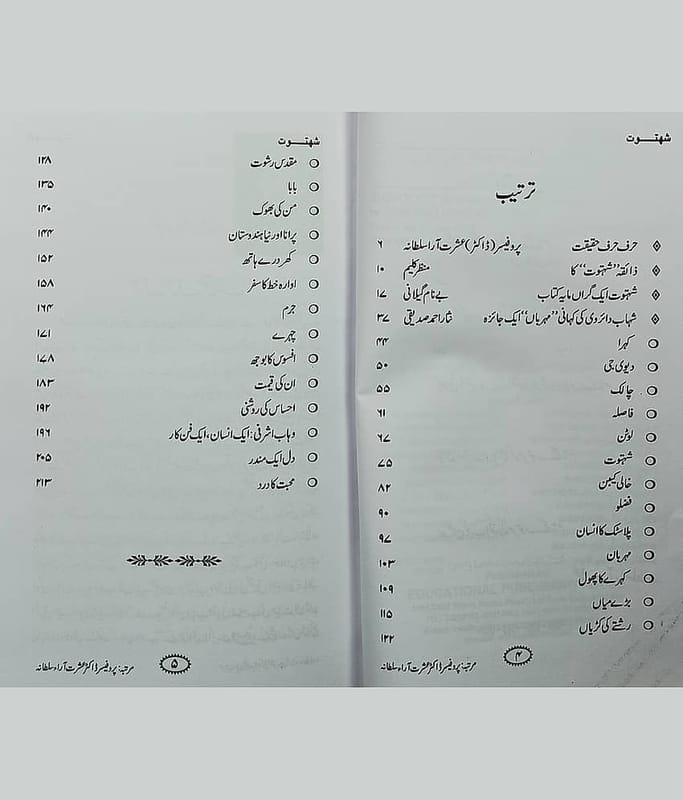 شہتوت
ترتیب
حرف حرف حقیقت پروفیسر (ڈاکٹر) عشرت آرا سلطانہ ۶
ذائقہ ’’شہتوت‘‘ کا منظر کلیم ۱۰
شہتوت ایک گراں مایہ کتاب بے نام گیلانی ۱۷
شہاب دائروی کی کہانی ’’مہرباں‘‘ ایک جائزہ نثار احمد صدیقی ۳۷
کہرا ۴۴
دیوی جی ۵۰
چالک ۵۵
فاصلہ ۶۱
لوٹن ۶۷
شہتوت ۷۵
خالی کیبن ۸۲
فضلو ۹۰
پلاسٹک کا انسان ۹۷
مہربان ۱۰۳
کہرے کا پھول ۱۰۹
بڑے میاں ۱۱۵
رشتے کی کڑیاں ۱۲۲
۴ مرتبہ: پروفیسر ڈاکٹر عشرت آراء سلطانہ
شہتوت
مقدس رشوت ۱۲۸
بابا ۱۳۵
من کی بھوک ۱۴۰
پرانا اور نیا ہندوستان ۱۴۴
کھردرے ہاتھ ۱۵۲
اوارہ خط کا سفر ۱۵۸
جرم ۱۶۴
چہرے ۱۷۱
افسوس کا بوجھ ۱۷۸
ان کی قیمت ۱۸۳
احساس کی روشنی ۱۹۲
وہاب اشرفی: ایک انسان، ایک فن کار ۱۹۶
دل ایک مندر ۲۰۵
محبت کا درد ۲۱۳
۵ مرتبہ: پروفیسر ڈاکٹر عشرت آراء سلطانہ